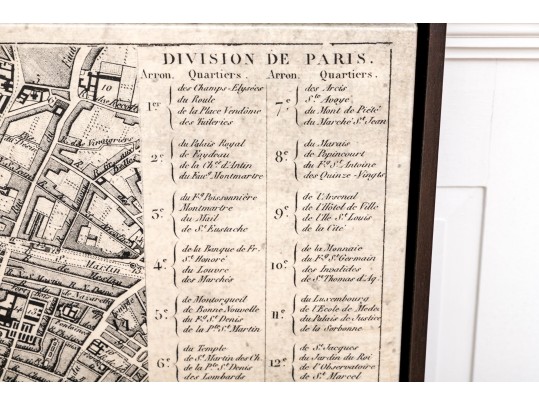 DIVISION DE PARIS.
Arron. Quartiers. Arron. Quartiers.
1er
des Champs-Elysées
du Roule
de la Place Vendôme
des Tuileries
2e
du Palais Royal
de Feydeau
de la Chée d'Antin
du Faug Montmartre
3e
du Fg Poissonnière
Montmartre
du Mail
de St Eustache
4e
de la Banque de Fr.
St Honoré
du Louvre
des Marchés
5e
de Montorgueil
de Bonne Nouvelle
du Fg St Denis
de la Pte St Martin
6e
du Temple
de St Martin des Ch.
de la Pte St Denis
des Lombards
7e
des Arcis
Ste Avoye
du Mont de Piété
du Marché St Jean
8e
du Marais
de Popincourt
du Fg St Antoine
des Quinze-Vingts
9e
de L'Arsenal
de l'Hôtel de Ville
de l'Ile St Louis
de la Cité
10e
de la Monnaie
du Fg St Germain
des Invalides
de St Thomas d'Aq.
11e
du Luxembourg
de l'Ecole de Méde.
du Palais de Justice
de la Sorbonne
12e
de St Jacques
du Jardin du Roi
de l'Observatoire
de St Marcel
des Vinaigriers
St Martin
de Nazareth
10